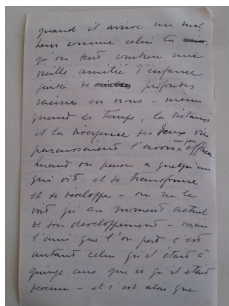 quand il arrive un mal
heur comme celui là
qu'on sent combien une
vieille amitié d'enfance
jette de profondes
racines en nous-mêmes
quand le temps, la distance
et la divergence des deux vies
paraissaient l'avoir
quand on pense à quelqu'un
qui vit et se transforme
et se développe - on ne le
voit qu'au moment actuel
de son développement - mais
l'ami que l'on perd c'est
autant celui qu'il était à
quinze ans que ce qu'il était
devenu - et c'est alors que